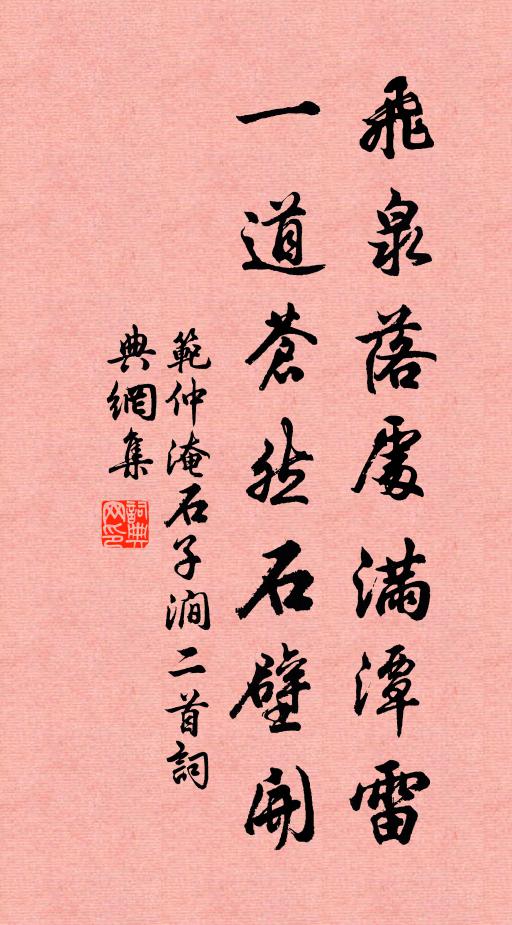 飛泉落處滿潭雷
一道蒼然石壁開
範仲淹石子澗二首詞
典網集
詞典网印